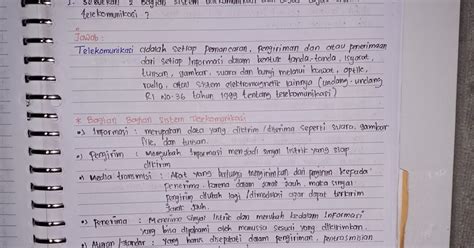 1. Sebutkan 2 Bagian sistem
telekomunikasi ?
Jawab:
Telekomunikasi adalah setiap pemancaran, pengiriman dan atau penerimaan
dari setiap informasi dalam bentuk tanda-tanda, isyarat,
tulisan, gambar, suara dan bunyi melalui kawat, optik,
radio, atau sistem elektromagnetik lainnya (undang-undang
RI No.36 tahun 1999 tentang telekomunikasi)
* Bagian Bagian Sistem Telekomunikasi
•) Informasi : merupakan data yang dikirim / diterima seperti suara, gambar
file, dan tulisan.
•) Pengirim : Mengubah Informasi menjadi sinyal listrik yang siap
dikirim
•) Media transmisi : Alat yang berfungsi mengirimkan dari pengirim kepada
Penerima. karena dalam jarak jauh maka sinyal
pengirim diubah lagi / dimodulasi agar dapat terkirim
Jarak Jauh.
•) Penerima : Menerima sinyal listrik dan merubah kedalam Informasi
yang bisa dipahami oleh manusia sesuai yang dikirimkan.
yang harus disepakati dalam pengiriman